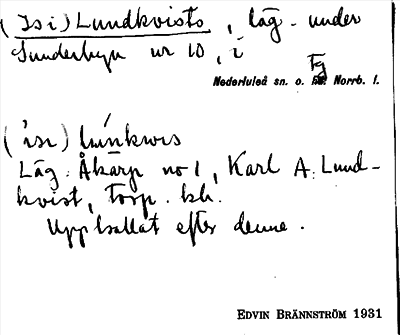 (Isi) Lundkvists, läg. under
Sunderbyn nr 10, i
Nederluleå sn. o. Fg Norrb. l.
(ìsi) lúnkwis
Läg. Åkärp no 1, Karl A. Lund-
kvist, torp. bh.
Uppkallat efter denne.
EDVIN BRÄNNSTRÖM 1931